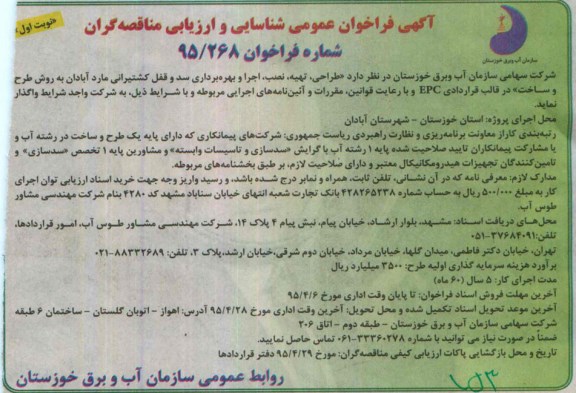 آگهی فراخوان عمومی شناسایی و ارزیابی مناقصه‌گران
«نوبت اول»
شماره فراخوان ۹۵/۲۶۸
سازمان آب و برق خوزستان
شرکت سهامی سازمان آب وبرق خوزستان در نظر دارد «طراحی، تهیه، نصب، اجرا و بهره‌برداری سد و قفل کشتیرانی مارد آبادان به روش طرح
و ساخت» در قالب قراردادی EPC و با رعایت قوانین، مقررات و آئین‌نامه‌های اجرایی مربوطه و با شرایط ذیل، به شرکت واجد شرایط واگذار
نماید.
محل اجرای پروژه: استان خوزستان - شهرستان آبادان
رتبه‌بندی کاراز معاونت برنامه‌ریزی و نظارت راهبردی ریاست جمهوری: شرکت‌های پیمانکاری که دارای پایه یک طرح و ساخت در رشته آب و
یا مشارکت پیمانکاران تایید صلاحیت شده پایه ۱ رشته آب با گرایش «سدسازی و تاسیسات وابسته» و مشاورین پایه ۱ تخصص «سدسازی» و
تامین‌کنندگان تجهیزات هیدرومکانیکال معتبر و دارای صلاحیت لازم، بر طبق بخشنامه‌های مربوطه.
مدارک لازم: معرفی نامه که در آن نشانی، تلفن ثابت، همراه و نمابر درج شده باشد، و رسید واریز وجه جهت خرید اسناد ارزیابی توان اجرای
کار به مبلغ ۵۰۰/۰۰۰ ریال به حساب شماره ۴۲۸۲۶۵۲۳۸ بانک تجارت شعبه انتهای خیابان سناباد مشهد کد ۴۲۸۰ بنام شرکت مهندسی مشاور
طوس آب.
محل‌های دریافت اسناد: مشهد، بلوار ارشاد، خیابان پیام، نبش پیام ۴ پلاک ۱۴، شرکت مهندسی مشاور طوس آب، امور قراردادها،
تلفن: ۳۷۶۸۴۰۹۱-۰۵۱
تهران، خیابان دکتر فاطمی، میدان گلها، خیابان مرداد، خیابان دوم شرقی، خیابان ارشد، پلاک ۳، تلفن: ۸۸۳۳۲۶۸۹-۰۲۱
برآورد هزینه سرمایه گذاری اولیه طرح: ۳۵۰۰ میلیارد ریال
مدت اجرای کار: ۵ سال (۶۰ ماه)
آخرین مهلت فروش اسناد فراخوان: تا پایان وقت اداری مورخ ۹۵/۴/۶
آخرین موعد تحویل اسناد تکمیل شده و محل تحویل: آخرین وقت اداری مورخ ۹۵/۴/۲۸ آدرس: اهواز - اتوبان گلستان - ساختمان ۶ طبقه
شرکت سهامی سازمان آب و برق خوزستان - طبقه دوم - اتاق ۲۰۶
ضمناً در صورت نیاز می توانید با شماره ۳۳۳۶۰۲۷۸-۰۶۱ تماس حاصل نمایید.
تاریخ و محل بازگشایی پاکات ارزیابی کیفی مناقصه‌گران: مورخ ۹۵/۴/۲۹ دفتر قراردادها
روابط عمومی سازمان آب و برق خوزستان